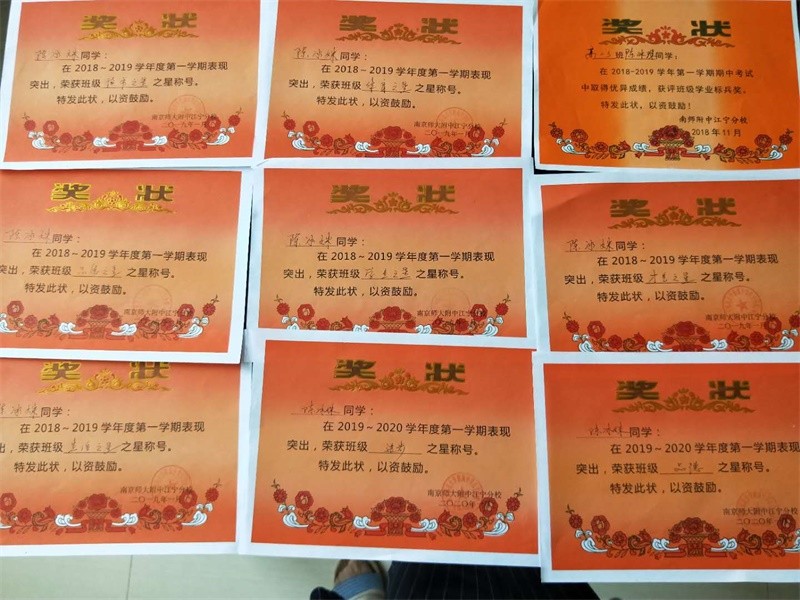 奖状
陈冰姝同学：
在2018～2019学年度第一学期表现
突出，荣获班级 之星称号。
特发此状，以资鼓励。
南京师大附中江宁分校
二〇一九年一月
奖状
陈冰姝同学：
在2018～2019学年度第一学期表现
突出，荣获班级体育之星之星称号。
特发此状，以资鼓励。
南京师大附中江宁分校
二〇一九年一月
奖状
班 同学：
在2018-2019学年第一学期期中考试
中取得优异成绩，获评班级学业标兵奖。
特发此状，以资鼓励！
南师附中江宁分校
2018年11月
奖状
陈冰姝同学：
在2018～2019学年度第一学期表现
突出，荣获班级品德之星之星称号。
特发此状，以资鼓励。
南京师大附中江宁分校
二〇一九年一月
奖状
陈冰姝同学：
在2018～2019学年度第一学期表现
突出，荣获班级 之星之星称号。
特发此状，以资鼓励。
南京师大附中江宁分校
二〇一九年一月
奖状
陈冰姝同学：
在2018～2019学年度第一学期表现
突出，荣获班级 之星之星称号。
特发此状，以资鼓励。
南京师大附中江宁分校
二〇一九年一月
奖状
冰姝同学：
在2018～2019学年度第一学期表现
突出，荣获班级 之星之星称号。
特发此状，以资鼓励。
南京师大附中江宁分校
二〇一九年一月
奖状
陈冰姝同学：
在2019～2020学年度第一学期表现
突出，荣获班级 之星称号。
特发此状，以资鼓励。
南京师大附中江宁分校
二〇二〇年
奖状
陈冰姝同学：
在2019～2020学年度第一学期表现
突出，荣获班级品德之星称号。
特发此状，以资鼓励。
南京师大附中江宁分校
二〇二〇年